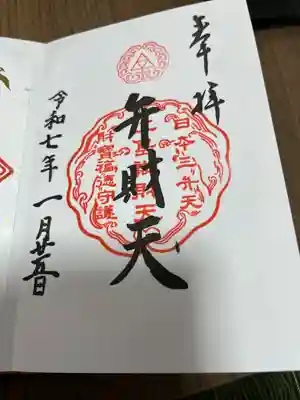 奉拝
日本三弁天
弁財天
財寶福德守護
令和七年一月廿五日